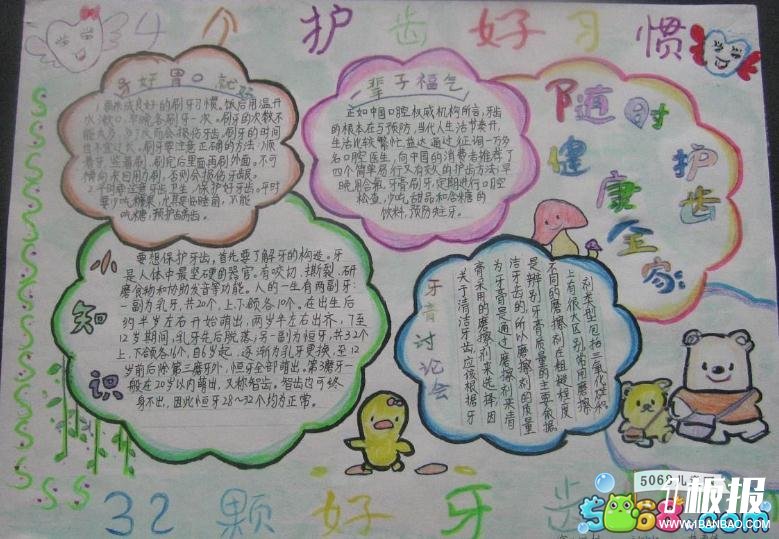 4个护齿好习惯
牙好胃口就好
1.要养成良好的刷牙习惯。饭后用温开
水漱口,早晚各刷牙一次。刷牙的次数不
能太多,多了反而会损伤牙齿。刷牙的时间
也不宜过长。刷牙要注意正确的方法:顺
着牙,竖着刷,刷完后里面再刷外面。不可
横向来回用力刷,否则会损伤牙龈。
2.平时要注意牙齿卫生,保护好牙齿。平时
要少吃糖果,尤其是临睡前,不能
吃糖,预护龋齿。
一辈子福气
正如中国口腔权威机构所言,牙齿
的根本在与预防,当代人生活节奏升,
生活比较繁忙,益达通过征询一万多
名口腔医生,向中国的消费者推荐了
四个简单易行又有效的护齿方法:早
晚用含氟牙膏刷牙,定期进行口腔
检查,少吃甜品和含糖的
饮料,预防蛀牙。
随时护齿
健康全家
小知识
要想保护牙齿,首先要了解牙的构造。牙
是人体中最坚硬的器官。有咬切、撕裂、研
磨食物和协助发音等功能。人的一生有两副牙:
一副为乳牙,共20个,上、下颌各10个。在出生后
约半岁左右开始萌出,两岁半左右出齐,7至
12岁期间,乳牙先后脱落;另一副为恒牙,共32个
上、下颌各16个,自6岁起,逐渐为乳牙更换,至12
岁前后除第三磨牙外,恒牙全部萌出。第3磨牙一
般在20岁以内萌出,又称智齿。智齿也可终
身不出,因此恒牙28~32个均为正常。
牙膏讨论会
关于清洁牙齿应该根据牙
膏采用的磨擦剂来选择,因
为牙膏是通过磨擦剂来清
洁牙齿的,所以磨擦剂的质量
是辨别牙膏质量的主要依据
不同的磨擦剂在粗糙程度
上有很大区别,常用磨擦
剂类型包括二氧化硅和
32颗好牙齿
5068儿童网
5068.com
1板报
WWW.1BANBAO.COM